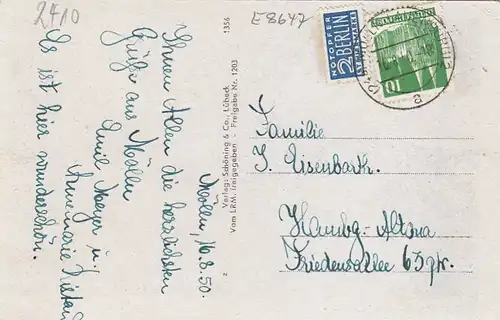 2410
E 8647
1356
Mölln, 16.8.50.
Ihnen Allen die herzlichsten
Grüße aus Mölln
Emil Meyer u.
Annemarie
Es ist hier wunderschön.
Verlag: Schöning & Co., Lübeck
Vom LRM. freigegeben - Freigabe Nr. 1203
2
NOTOPFER
2 BERLIN
STEUERMARKE
10
a
Familie
J. Eisenbarth.
Hambg-Altona
Friedensallee 63 ptr.